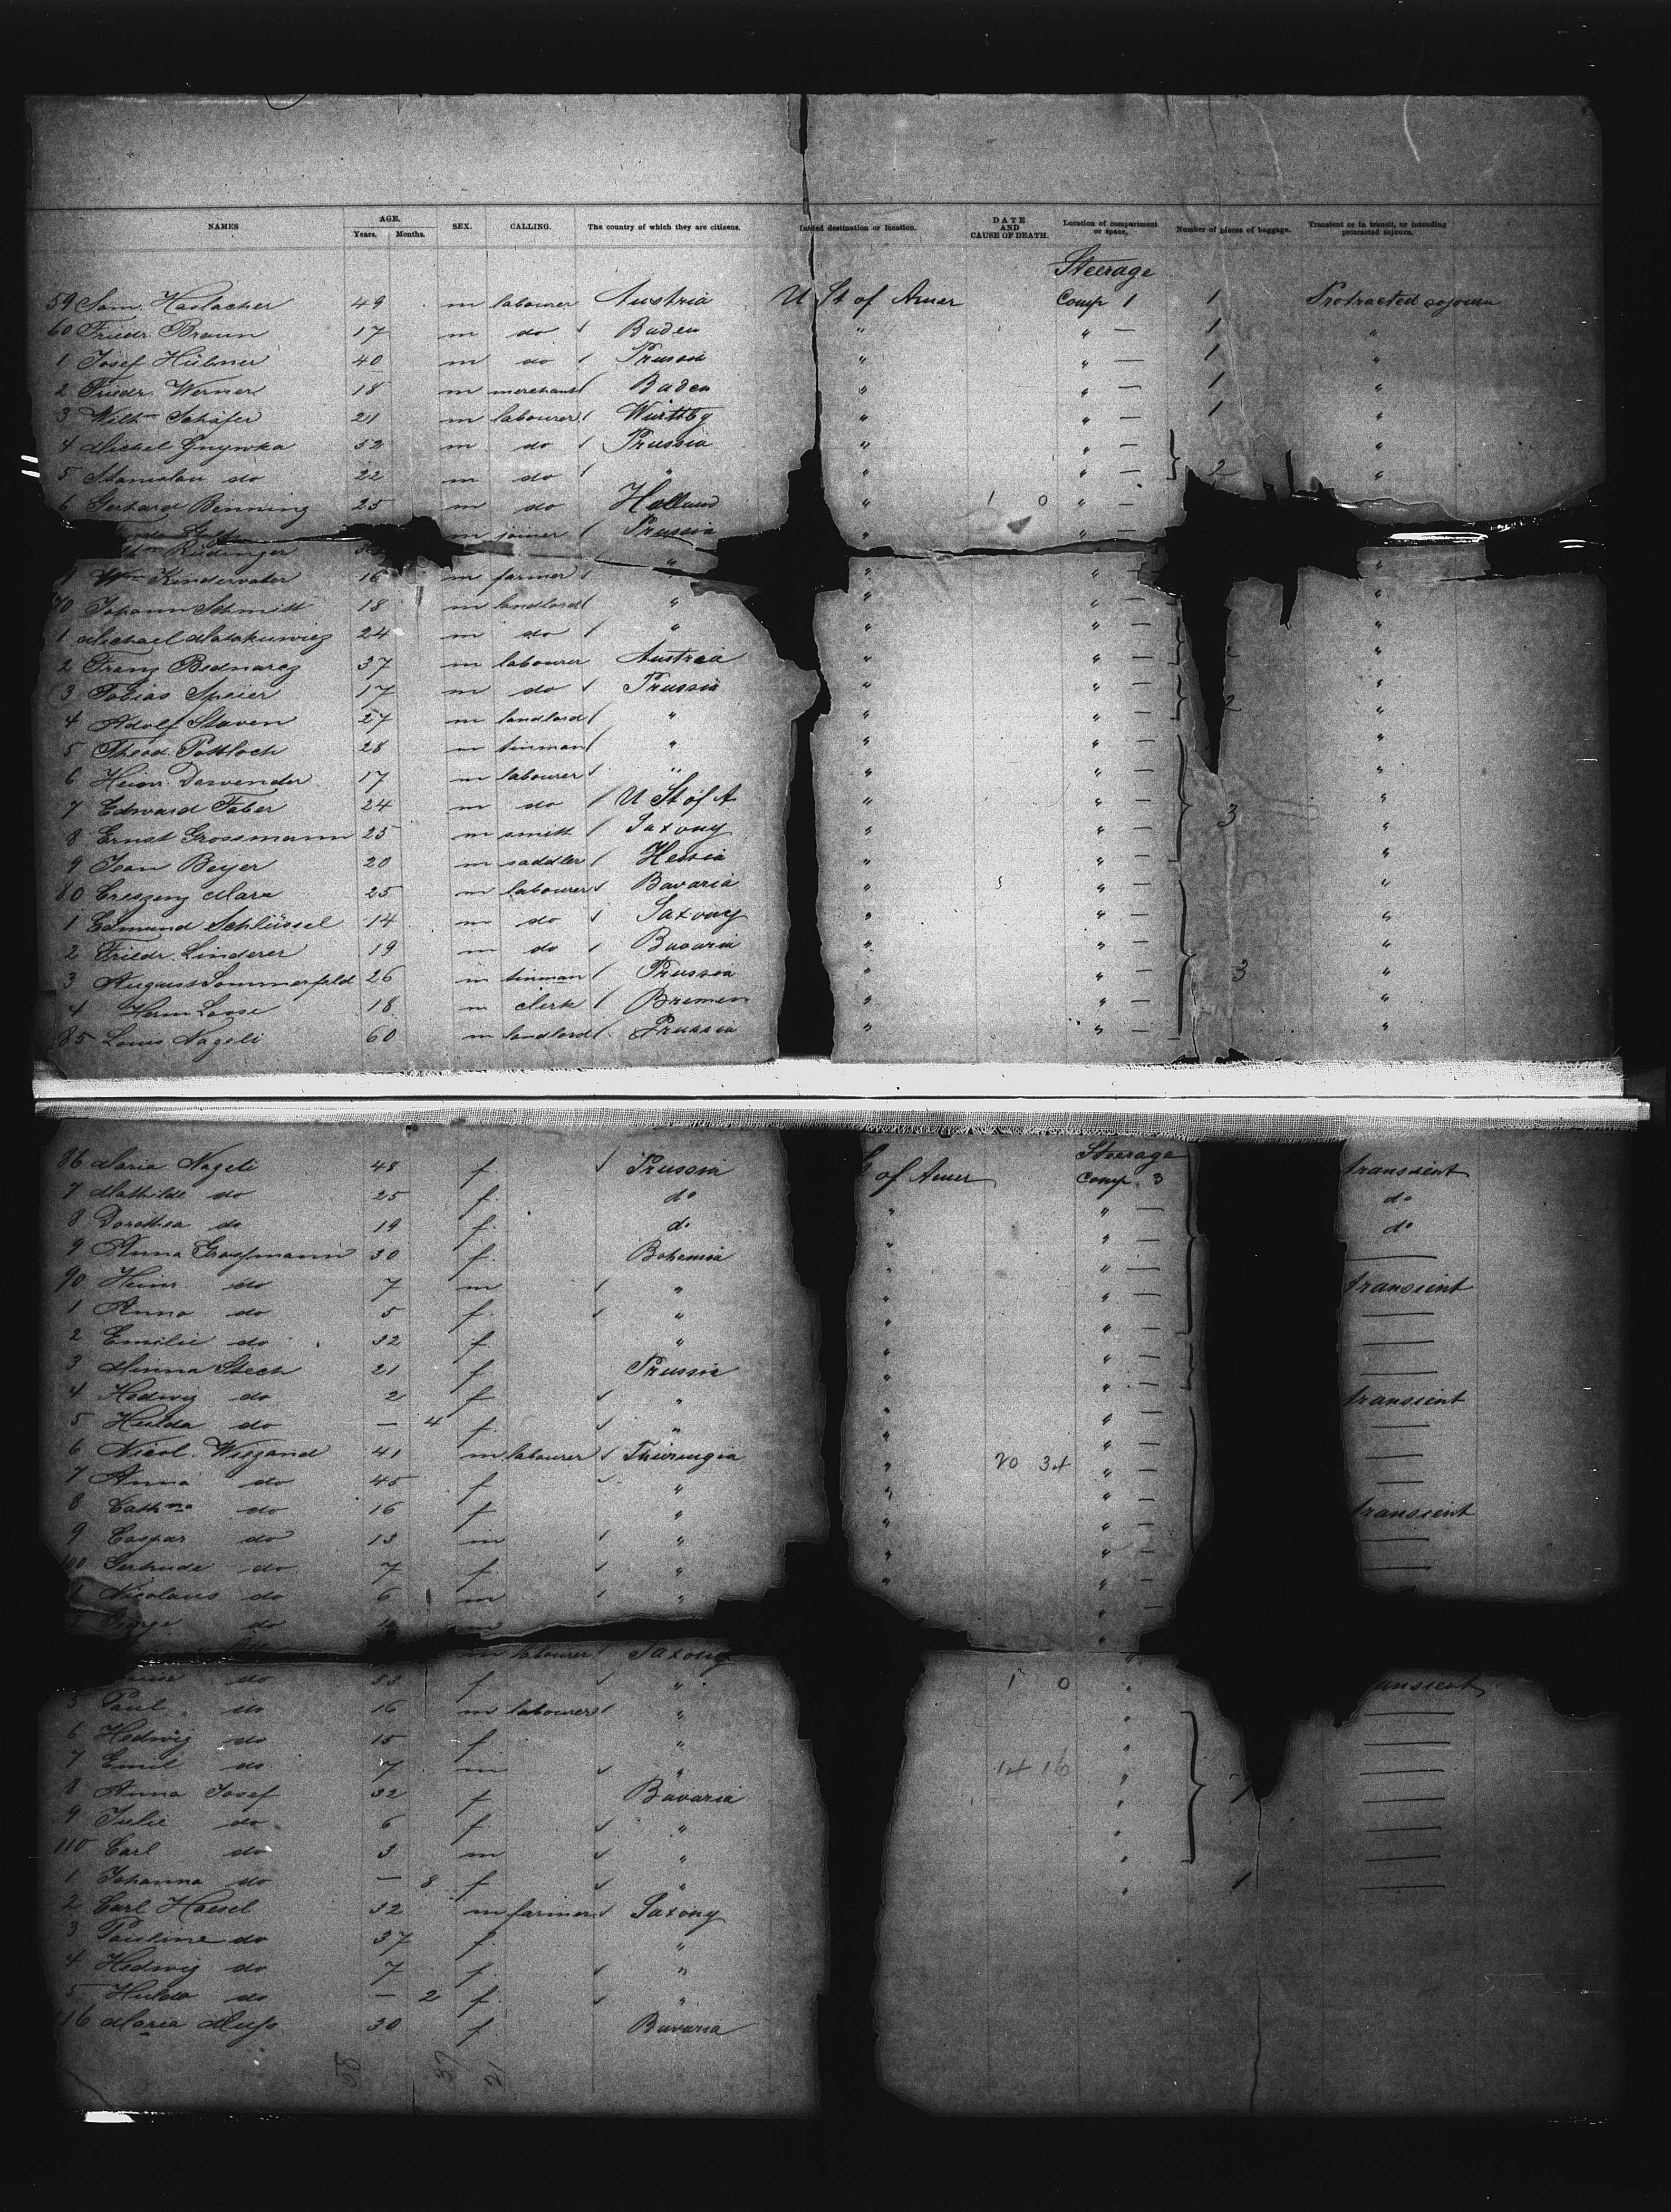 NAMES AGE. Years. Months. SEX. CALLING. The country of which they are citizens. Intded destination or location. DATE AND CAUSE OF DEATH. Location of compartment or space. Number of pieces of baggage. Transient or in transit, or intending protracted sojourn.
Steerage
59 Sam. Haslacher 49 m labourer Austria U St of Amer Comp 1 1 Protracted sojourn
60 Friedr. Braun 17 m do Baden " " — 1 "
1 Josef Hübner 40 m do Prussia " " — 1 "
2 Friedr. Werner 18 m merchant Baden " " — 1 "
3 Wilhm Schäfer 21 m labourer Württbg " " — 1 "
4 Michel Gnywka 52 m do Prussia " " — "
5 Stanislau do 22 m do " " " — 2 "
6 Gerhard Benning 25 m do Holland " 1 0 " —
m joiner Prussia " " —
Rüdinger " "
Wm Kindervater 16 m farmer " " " — "
70 Johann Schmitt 18 m landlord " " " — "
1 Michael Matakuwicz 24 m do " " " — "
2 Franz Bednarcz 37 m labourer Austria " " — 2 "
3 Tobias Speier 17 m do Prussia " " — "
4 Adolf Staven 27 m landlord " " " — 2 "
5 Theod. Pottloch 28 m tinman " " " — "
6 Heinr. Dewender 17 m labourer " " " — "
7 Edward Faber 24 m do U St of A " " — 3 "
8 Ernst Grossmann 25 m smitt Saxony " " — "
9 Jean Beyer 20 m saddler Hessia " " — "
80 Creszenz Marx 25 m labourer Bavaria " " — "
1 Edmund Schlüssel 14 m do Saxony " " — "
2 Friedr. Linderer 19 m do Bavaria " " — "
3 August Sommerfeld 26 m tinman Prussia " " — 3 "
4 Herm Loose 18 m clerk Bremen " " — "
85 Louis Nageli 60 m landlord Prussia " " — "
Steerage
86 Maria Nageli 48 f Prussia of Amer Comp. 3 transient
7 Mathilde do 25 f. do " " — do
8 Dorothea do 19 f. do " " — do
9 Anna Grossmann 30 f. Bohemia " " — —
90 Heinr. do 7 m " " " — transient
1 Anna do 5 f. " " " — —
2 Emilie do 32 f. " " " — —
3 Minna Stech 21 f Prussia " " — —
4 Hedwig do 2 f " " " — transient
5 Hulda do — 4 f. " " " — —
6 Nicol. Wiegand 41 m labourer Thuringia " 20 34 " — —
7 Anna do 45 f " " " — —
8 Cathna do 16 f " " " — transient
9 Caspar do 13 m " " " — —
100 Gertrude do 7 f " " " — —
1 Nicolaus do 6 m " "
George do m "
m labourer Saxony "
do 53 f " 1 0 " ansient
5 Paul do 16 m labourer " " —
6 Hedwig do 15 f " " —
7 Emil do 7 m " 14 16 " 7 —
8 Anna Josef 32 f Bavaria " —
9 Julie do 6 f " " —
110 Carl do 3 m " " —
1 Johanna do — 8 f " " 1 —
2 Carl Haesel 32 m farmer Saxony
3 Pauline do 37 f. "
4 Hedwig do 7 f. "
5 Hulda do — 2 f. "
116 Maria Muss 30 f. Bavaria
58 37 21